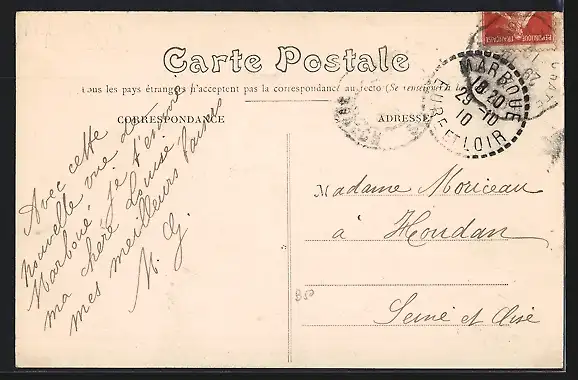 Carte Postale
Tous les pays étrangers n'acceptent pas la correspondance au recto (Se renseigner à la
CORRESPONDANCE
ADRESSE
Avec cette
nouvelle vue de
Marboué, je t'envoie
ma chère Louise
mes meilleurs baisers
M. Cj.
Madame Moriceau
à Houdan
Seine et Oise
B50
MARBOUE
18 30
29 10
10
EURE ET LOIR
REPUBLIQUE FRANÇAISE